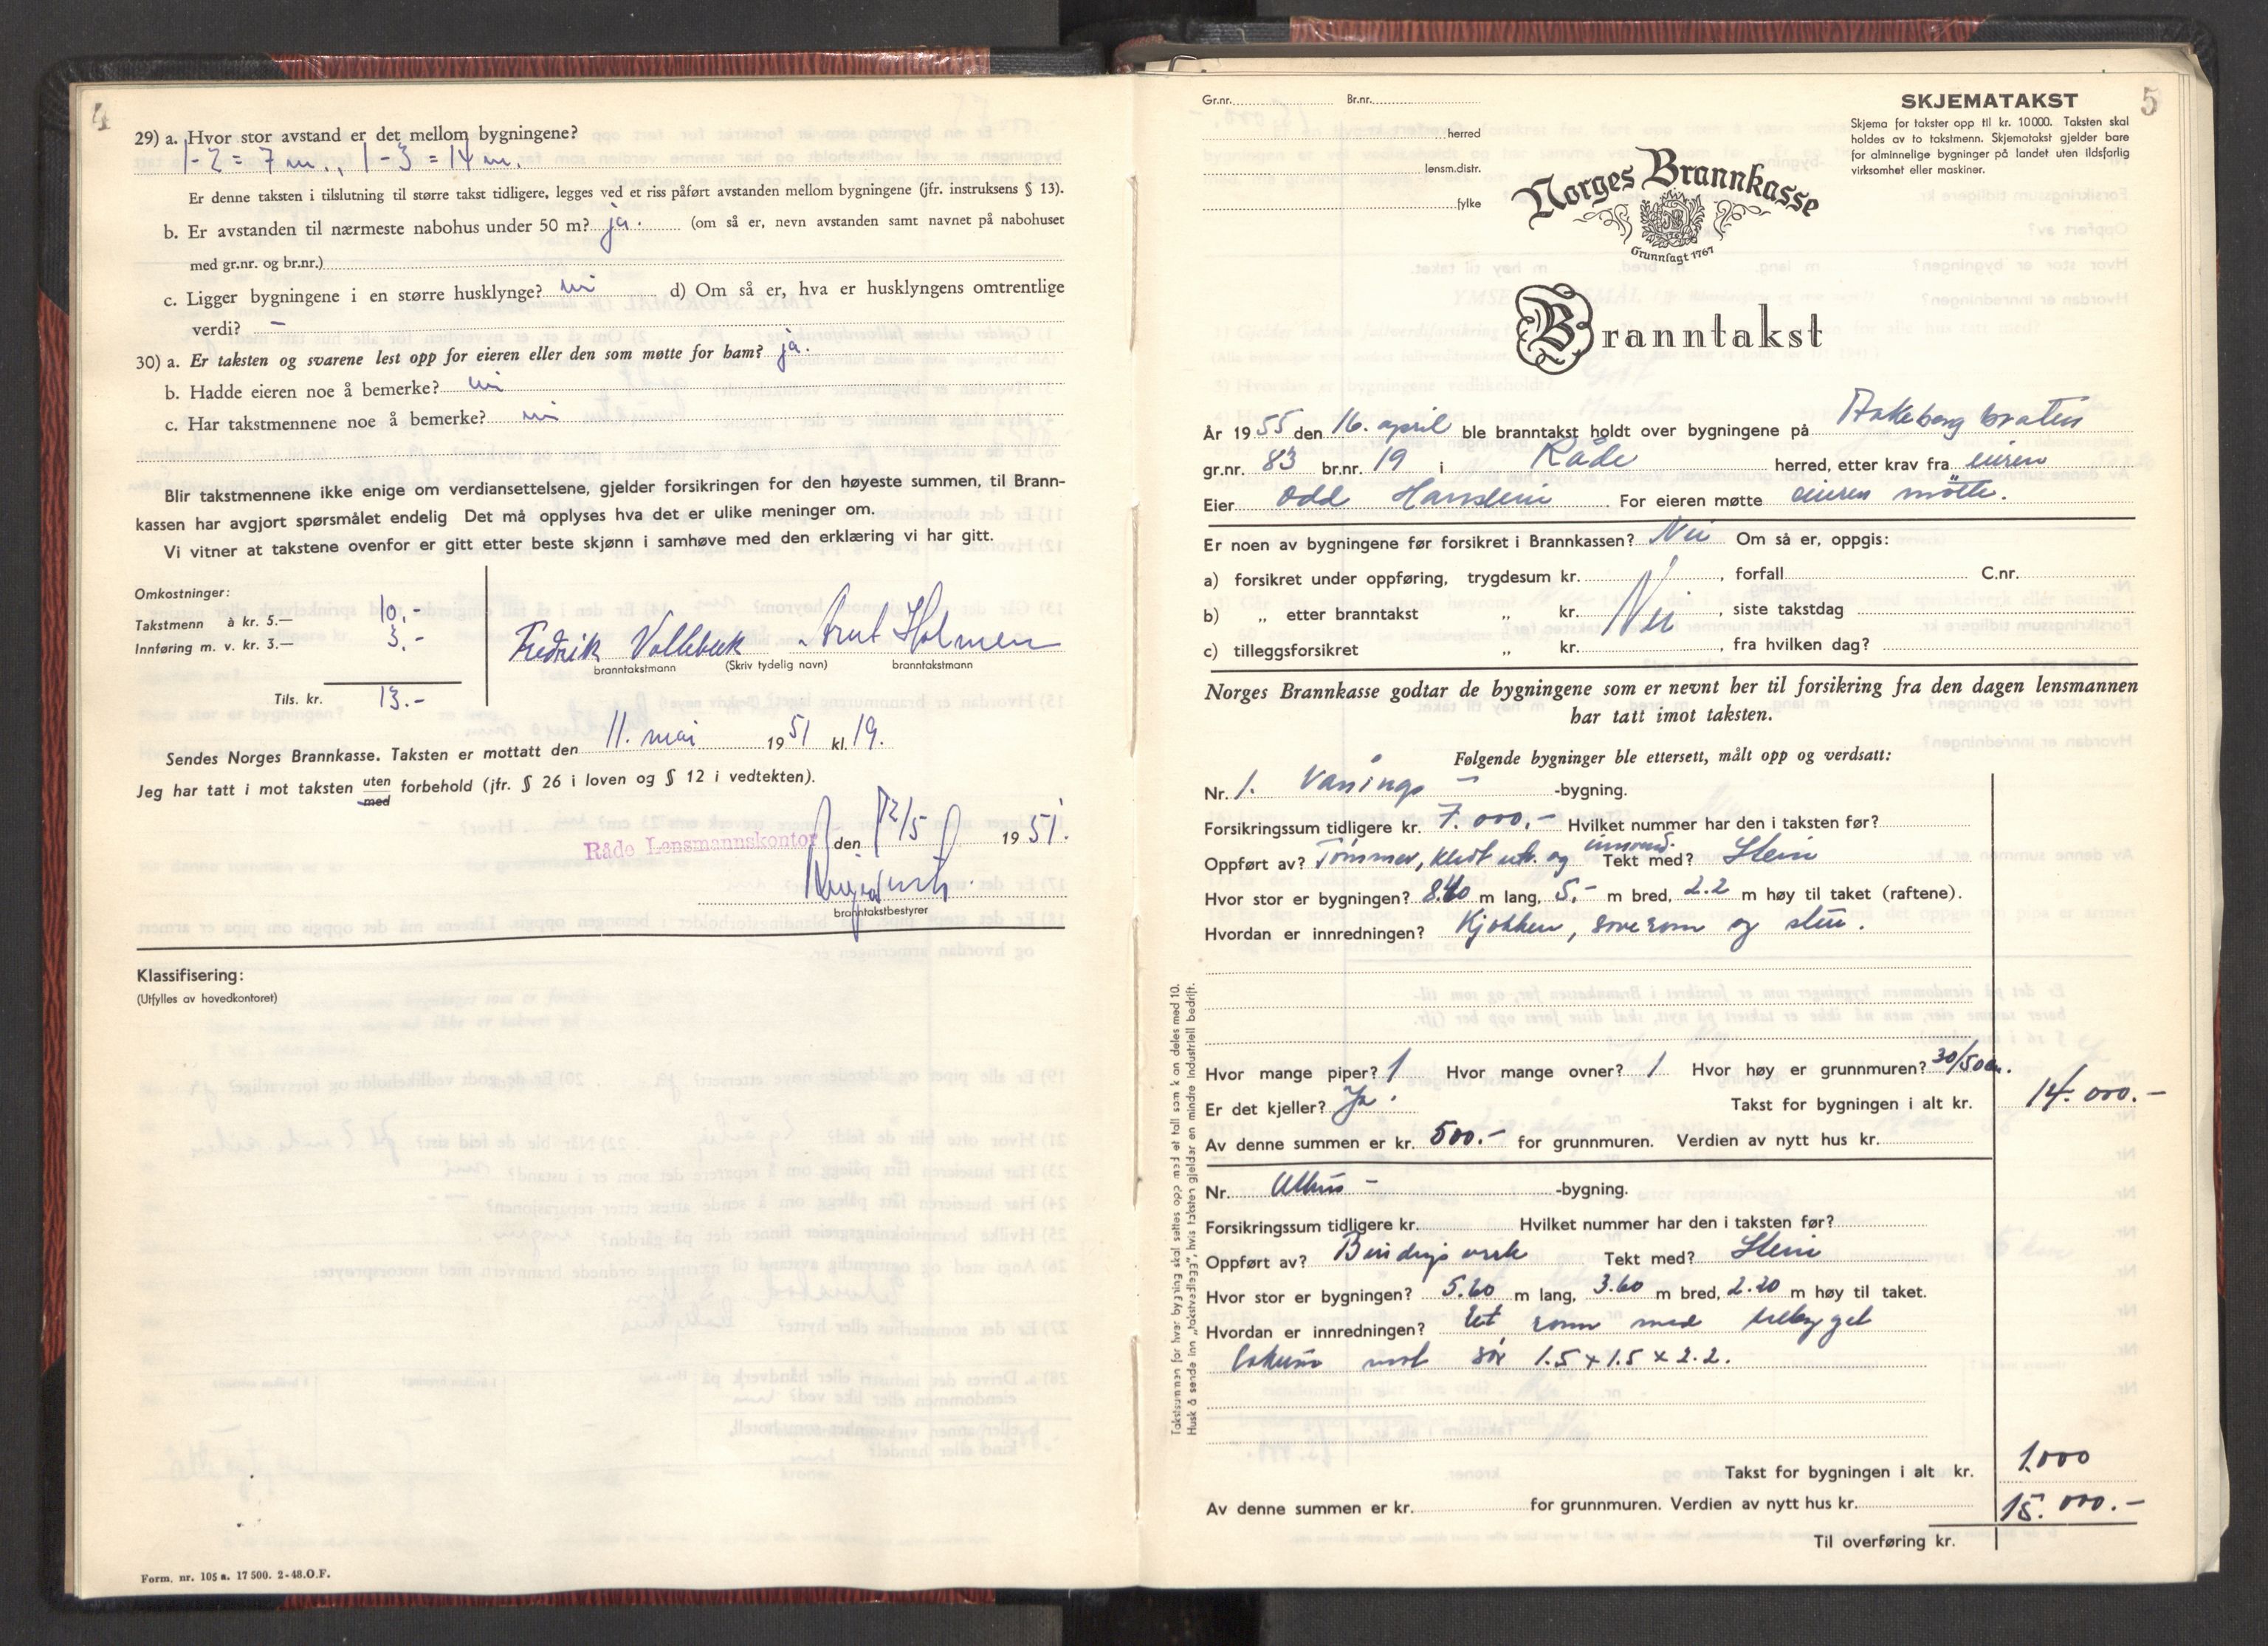 4
29) a. Hvor stor avstand er det mellom bygningene?
1-2 = 7 m., 1-3 = 14 m.
Er denne taksten i tilslutning til større takst tidligere, legges ved et riss påført avstanden mellom bygningene (jfr. instruksens § 13).
b. Er avstanden til nærmeste nabohus under 50 m? ja. (om så er, nevn avstanden samt navnet på nabohuset
med gr.nr. og br.nr.)
c. Ligger bygningene i en større husklynge? nei d) Om så er, hva er husklyngens omtrentlige
verdi? –
30) a. Er taksten og svarene lest opp for eieren eller den som møtte for ham? ja.
b. Hadde eieren noe å bemerke? nei
c. Har takstmennene noe å bemerke? nei
Blir takstmennene ikke enige om verdiansettelsene, gjelder forsikringen for den høyeste summen, til Brann-
kassen har avgjort spørsmålet endelig Det må opplyses hva det er ulike meninger om.
Vi vitner at takstene ovenfor er gitt etter beste skjønn i samhøve med den erklæring vi har gitt.
Omkostninger:
Takstmenn à kr. 5.— 10.-
Innføring m. v. kr. 3.— 3.-
Tils. kr. 13.-
Fredrik Vollebæk Arnt Holmen
branntakstmann (Skriv tydelig navn) branntakstmann
Sendes Norges Brannkasse. Taksten er mottatt den 11. mai 1951 kl. 19.
Jeg har tatt i mot taksten uten med forbehold (jfr. § 26 i loven og § 12 i vedtekten).
Råde Lensmannskontor den 12/5 1951.
branntakstbestyrer
Klassifisering:
(Utfylles av hovedkontoret)
Form. nr. 105 a. 17 500. 2-48. O.F.
5
Gr.nr. Br.nr.
herred
lensm.distr.
fylke
SKJEMATAKST
Skjema for takster opp til kr. 10000. Taksten skal
holdes av to takstmenn. Skjematakst gjelder bare
for alminnelige bygninger på landet uten ildsfarlig
virksomhet eller maskiner.
Norges Brannkasse
Grunnlagt 1767
Branntakst
År 1955 den 16. april ble branntakst holdt over bygningene på Aakeberg bråten
gr.nr. 83 br.nr. 19 i Råde herred, etter krav fra eieren
Eier Odd Hanslien For eieren møtte eieren møtte.
Er noen av bygningene før forsikret i Brannkassen? Nei Om så er, oppgis:
a) forsikret under oppføring, trygdesum kr. , forfall C.nr.
b) „ etter branntakst „ kr. Nei , siste takstdag
c) tilleggsforsikret „ kr. , fra hvilken dag?
Norges Brannkasse godtar de bygningene som er nevnt her til forsikring fra den dagen lensmannen
har tatt imot taksten.
Følgende bygninger ble ettersett, målt opp og verdsatt:
Nr. 1. Vånings – -bygning.
Forsikringssum tidligere kr. 7.000.- Hvilket nummer har den i taksten før?
Oppført av? Tømmer, kledt utv. og innvend. Tekt med? Stein
Hvor stor er bygningen? 8.40 m lang, 5,- m bred, 2.2 m høy til taket (raftene).
Hvordan er innredningen? Kjøkken, soverom og stue.
Hvor mange piper? 1 Hvor mange ovner? 1 Hvor høy er grunnmuren? 30/50 cm.
Er det kjeller? Ja. Takst for bygningen i alt kr. 14.000.-
Av denne summen er kr. 500.- for grunnmuren. Verdien av nytt hus kr.
Nr. Uthus – -bygning.
Forsikringssum tidligere kr. Hvilket nummer har den i taksten før?
Oppført av? Bindingsverk Tekt med? Stein
Hvor stor er bygningen? 5.60 m lang, 3.60 m bred, 2.20 m høy til taket.
Hvordan er innredningen? Et rom med tilbygget
mot sør 1.5 x 1.5 x 2.2.
Takst for bygningen i alt kr. 1.000
Av denne summen er kr. for grunnmuren. Verdien av nytt hus kr. 15.000.-
Til overføring kr.
Takstsummen for hver bygning skal settes opp med et tall som kan deles med 10.
Husk å sende inn „takstvedlegg", hvis taksten gjelder en mindre industriell bedrift.